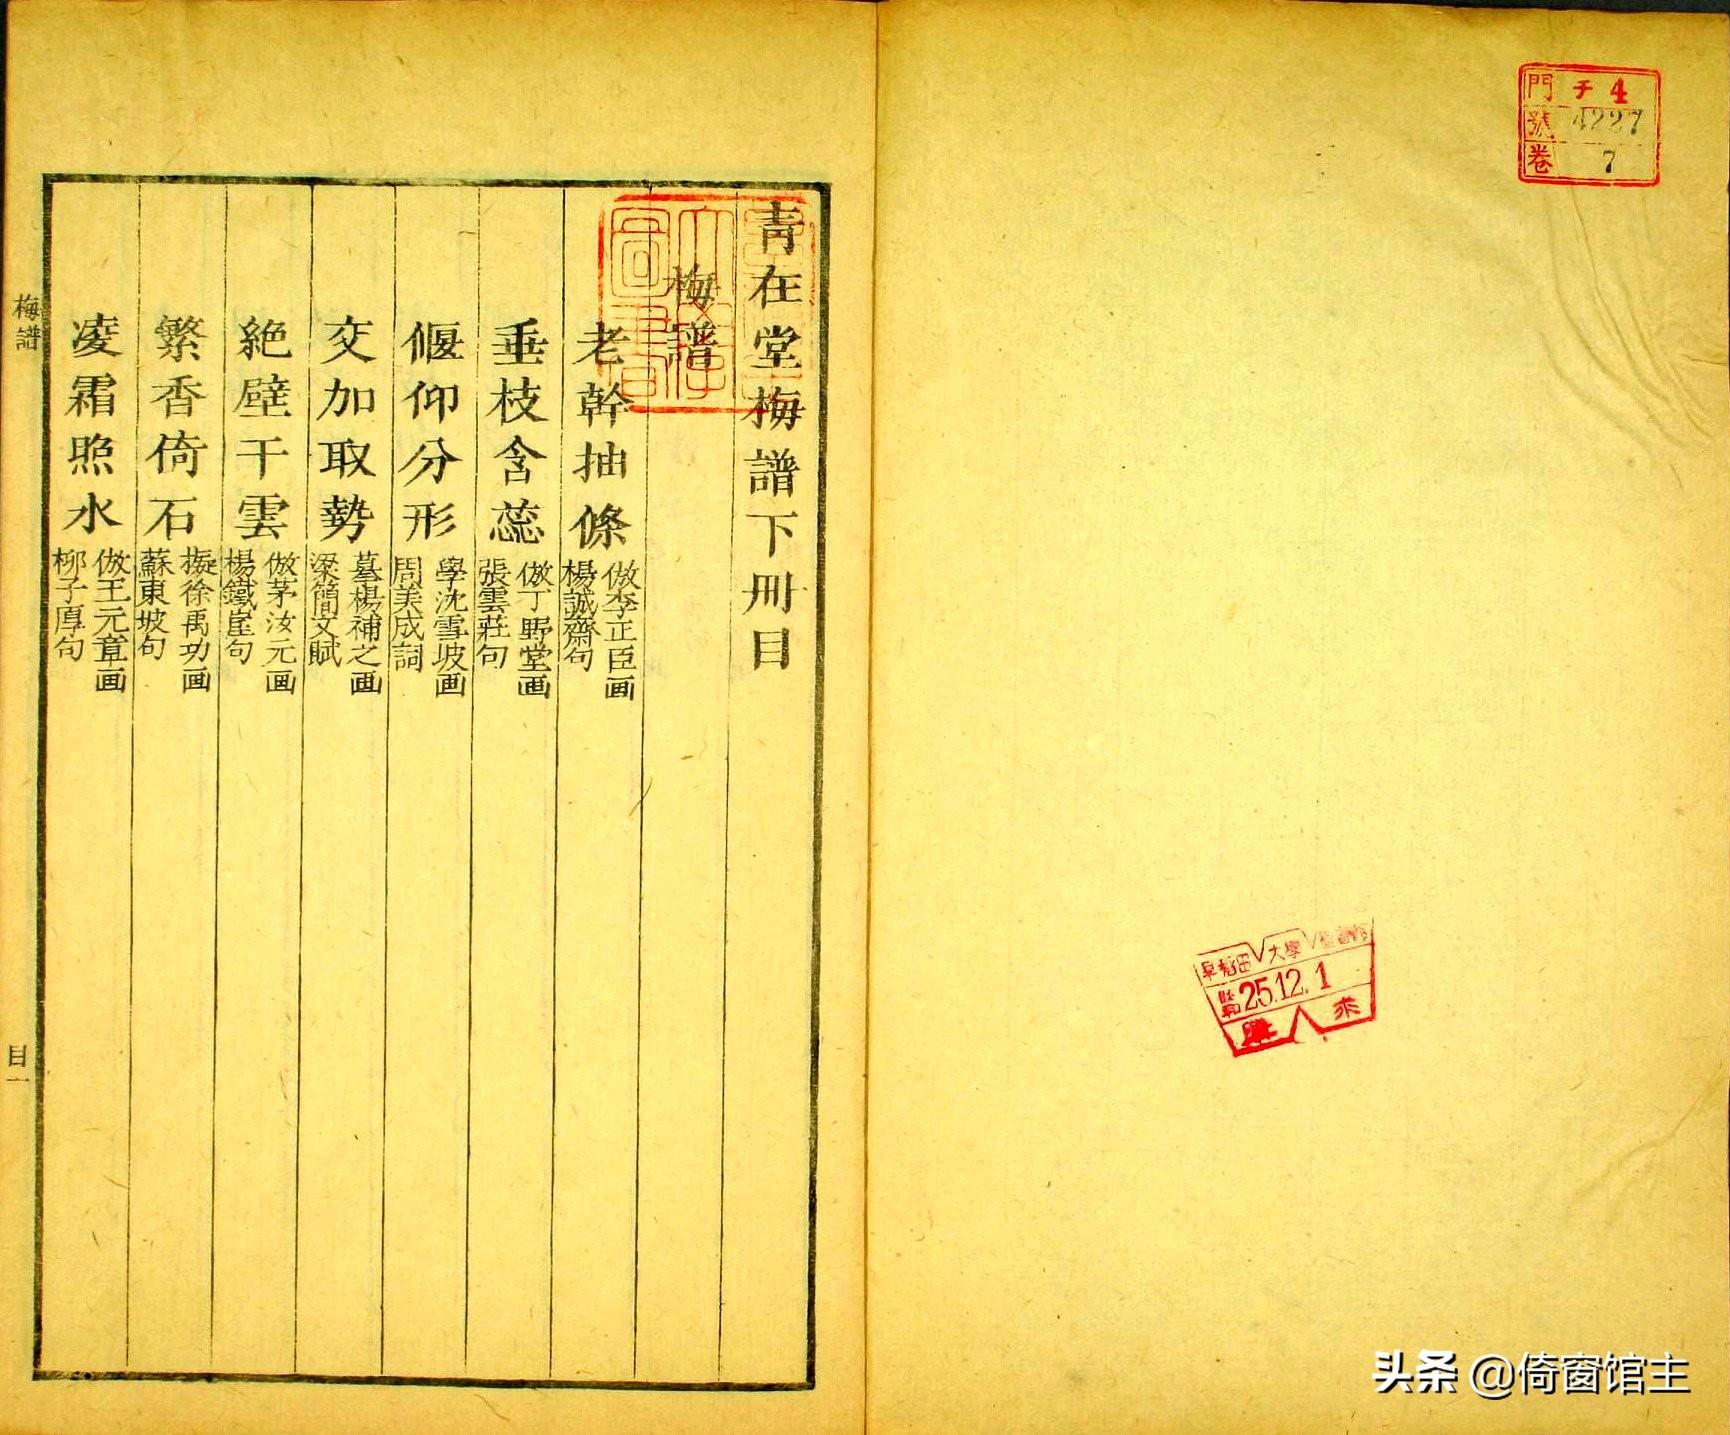 門 チ 4
號 4227
卷 7
早稻田大學
25.12.1
來
青在堂梅譜下冊目
梅譜
老幹抽條
倣李正臣画
楊誠齋句
垂枝含蕊
倣丁野堂画
張雲莊句
偃仰分形
學沈雪坡画
周美成詞
交加取勢
摹楊補之画
梁簡文賦
絕壁干雲
倣茅汝元画
楊鐵崖句
繁香倚石
擬徐禹功画
蘇東坡句
凌霜照水
倣王元章画
柳子厚句
梅譜
目一
头条 @倚窗馆主